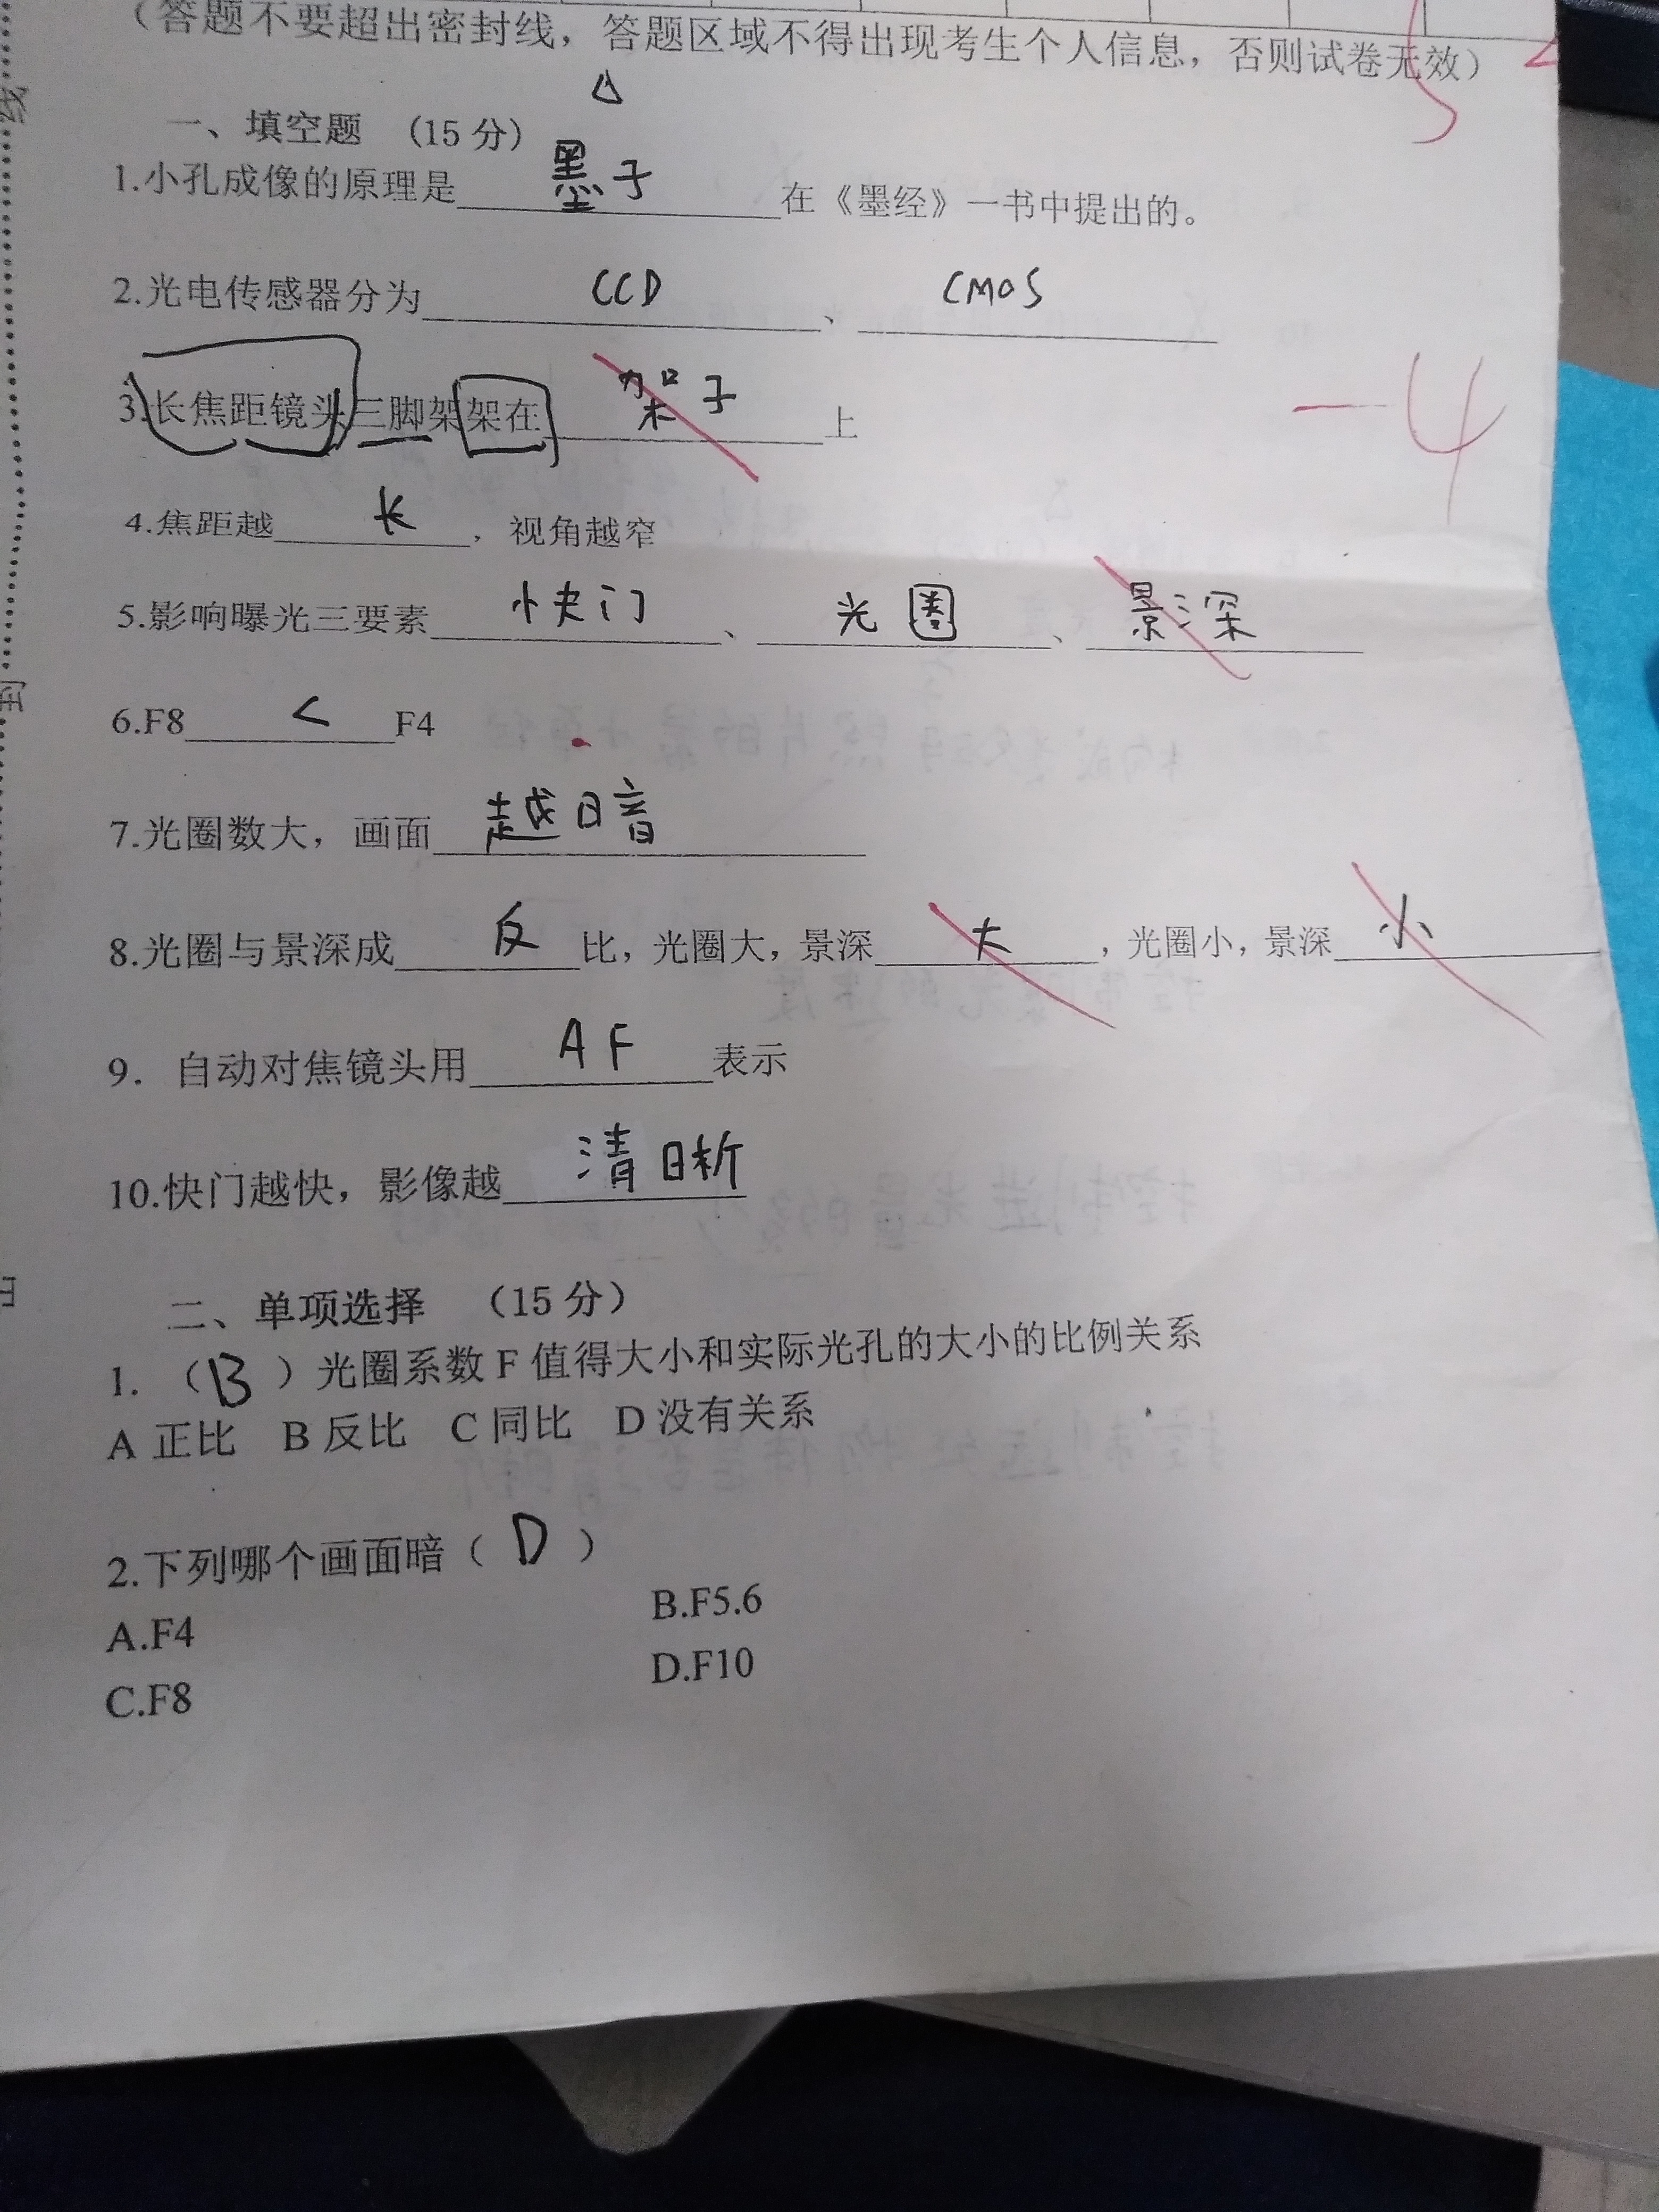 （答题不要超出密封线，答题区域不得出现考生个人信息，否则试卷无效）
一、填空题 (15分)
1.小孔成像的原理是墨子在《墨经》一书中提出的。
2.光电传感器分为CCD、CMOS
3.长焦距镜头三脚架架在架子上
-4
4.焦距越长，视角越窄
5.影响曝光三要素快门、光圈、景深
6.F8<F4
7.光圈数大，画面越暗
8.光圈与景深成反比，光圈大，景深大，光圈小，景深小
9. 自动对焦镜头用AF表示
10.快门越快，影像越清晰
二、单项选择 （15分）
1.（B）光圈系数F值得大小和实际光孔的大小的比例关系
A 正比 B 反比 C 同比 D 没有关系
2.下列哪个画面暗（D）
A.F4 B.F5.6
C.F8 D.F10